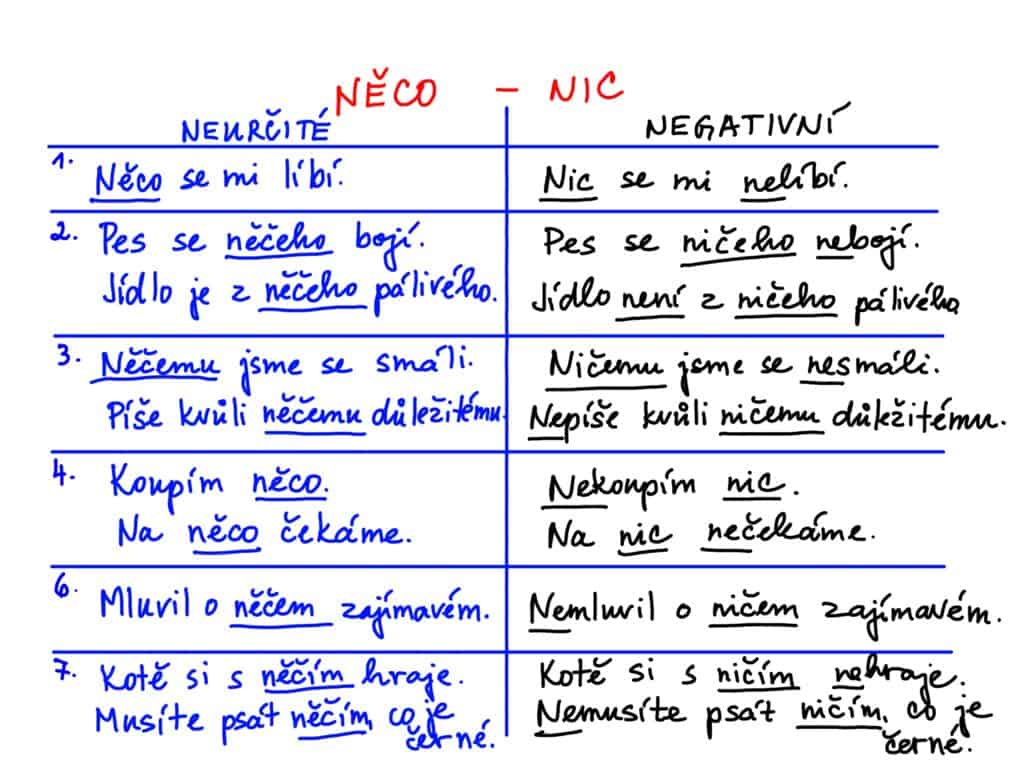 NĚCO – NIC
NEURČITÉ NEGATIVNÍ
1. Něco se mi líbí. Nic se mi nelíbí.
2. Pes se něčeho bojí. Pes se ničeho nebojí.
Jídlo je z něčeho pálivého. Jídlo není z ničeho pálivého
3. Něčemu jsme se smáli. Ničemu jsme se nesmáli.
Píše kvůli něčemu důležitému. Nepíše kvůli ničemu důležitému.
4. Koupím něco. Nekoupím nic.
Na něco čekáme. Na nic nečekáme.
6. Mluvil o něčem zajímavém. Nemluvil o ničem zajímavém.
7. Kotě si s něčím hraje. Kotě si s ničím nehraje.
Musíte psát něčím, co je Nemusíte psát ničím, co je
černé. černé.